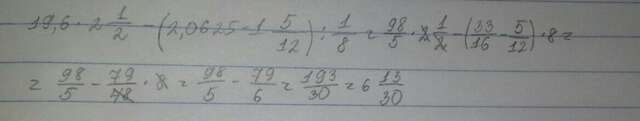 19,6 · 2 1/2 - (2,0625 - 1 5/12) : 1/8 = 98/5 · 2 1/2 - (33/16 - 5/12) · 8 =
= 98/5 - 79/48 · 8 = 98/5 - 79/6 = 193/30 = 6 13/30